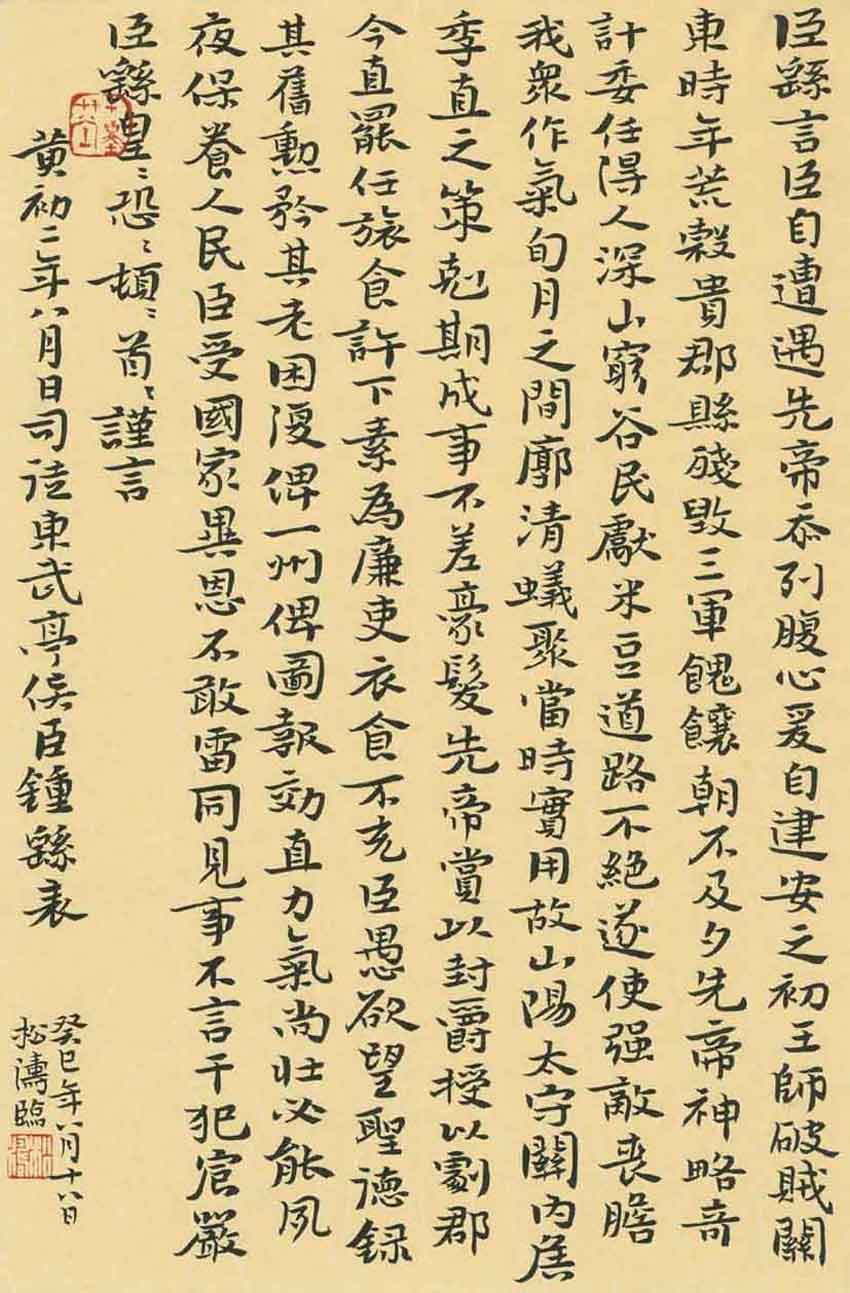 臣繇言臣自遭遇先帝忝列腹心爰自建安之初王師破賊關
東時年荒穀貴郡縣殘毀三軍餽饟朝不及夕先帝神略奇
計委任得人深山窮谷民獻米豆道路不絕遂使强敵喪膽
我衆作氣旬月之間廓清蟻聚當時實用故山陽太守關內侯
季直之策剋期成事不差豪髮先帝賞以封爵授以劇郡
今直罷任旅食許下素為廉吏衣食不充臣愚欲望聖德錄
其舊勳矜其老困復俾一州俾圖報効直力氣尚壯必能夙
夜保養人民臣受國家異恩不敢雷同見事不言干犯宸嚴
臣繇皇〻恐〻頓〻首〻謹言
黃初二年八月日司徒東武亭侯臣鍾繇表
癸巳年八月十八日
松濤臨